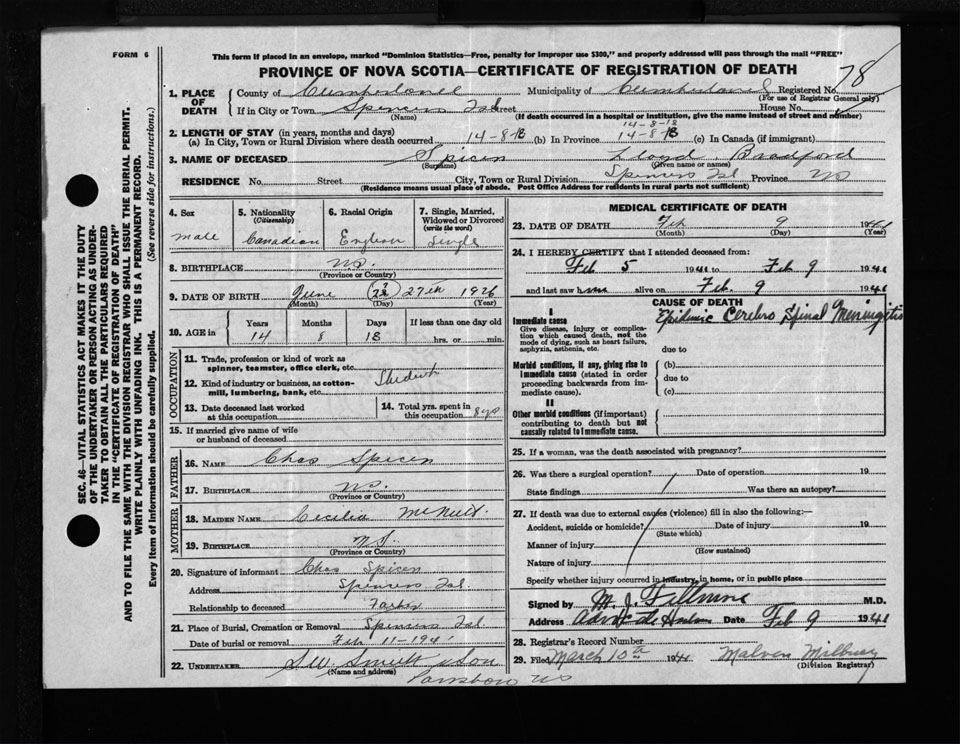 FORM 6
This form if placed in an envelope, marked "Dominion Statistics—Free, penalty for improper use $300," and properly addressed will pass through the mail "FREE"
PROVINCE OF NOVA SCOTIA—CERTIFICATE OF REGISTRATION OF DEATH
78
1. PLACE OF DEATH
County of Cumberland Municipality of Cumberland Registered No.
(For use of Registrar General only)
If in City or Town Spencers Isl Street House No.
(Name) (If death occurred in a hospital or institution, give the name instead of street and number)
2. LENGTH OF STAY (in years, months and days)
14-8-13
(a) In City, Town or Rural Division where death occurred 14-8-13 (b) In Province 14-8-13 (c) In Canada (if immigrant)
3. NAME OF DECEASED Spicer Lloyd Bradford
(Surname) (Given name or names)
RESIDENCE No. Street City, Town or Rural Division Spencers Isl Province NS
(Residence means usual place of abode. Post Office Address for residents in rural parts not sufficient)
4. Sex
male
5. Nationality
(Citizenship)
Canadian
6. Racial Origin
English
7. Single, Married, Widowed or Divorced
(write the word)
Single
8. BIRTHPLACE N.S.
(Province or Country)
9. DATE OF BIRTH June 27th 1926
(Month) (Day) (Year)
10. AGE in
Years Months Days If less than one day old
14 8 13 hrs. or min.
OCCUPATION
11. Trade, profession or kind of work as spinner, teamster, office clerk, etc.
12. Kind of industry or business, as cotton-mill, lumbering, bank, etc.
Student
13. Date deceased last worked at this occupation
14. Total yrs. spent in this occupation 8 yrs
15. If married give name of wife or husband of deceased
FATHER
16. NAME Chas Spicer
17. BIRTHPLACE NS.
(Province or Country)
MOTHER
18. MAIDEN NAME Cecilia McNutt
19. BIRTHPLACE N.S.
(Province or Country)
20. Signature of informant Chas Spicer
Address Spencers Isl.
Relationship to deceased Father
21. Place of Burial, Cremation or Removal Spencers Isl
Date of burial or removal Feb 11-1941
22. UNDERTAKER & Son
(Name and address)
Parrsboro NS
MEDICAL CERTIFICATE OF DEATH
23. DATE OF DEATH Feb 9 1941
(Month) (Day) (Year)
24. I HEREBY CERTIFY that I attended deceased from:
Feb 5 1941 to Feb 9 1941
and last saw him alive on Feb. 9 1941
CAUSE OF DEATH
I
Immediate cause Epidemic Cerebro Spinal Meningitis
Give disease, injury or complication which caused death, not the mode of dying, such as heart failure, asphyxia, asthenia, etc.
due to
Morbid conditions, if any, giving rise to immediate cause (stated in order proceeding backwards from immediate cause).
(b)
due to
(c)
II
Other morbid conditions (if important) contributing to death but not causally related to immediate cause.
25. If a woman, was the death associated with pregnancy?
26. Was there a surgical operation? Date of operation 19
State findings Was there an autopsy?
27. If death was due to external causes (violence) fill in also the following:—
Accident, suicide or homicide? Date of injury 19
(State which)
Manner of injury
(How sustained)
Nature of injury
Specify whether injury occurred in industry, in home, or in public place
Signed by M. J. Fillmore M.D.
Address Date Feb 9 1941
28. Registrar's Record Number
29. Filed March 10th 1941
(Division Registrar)
SEC. 46—VITAL STATISTICS ACT MAKES IT THE DUTY
OF THE UNDERTAKER OR PERSON ACTING AS UNDER-
TAKER TO OBTAIN ALL THE PARTICULARS REQUIRED
IN THE "CERTIFICATE OF REGISTRATION OF DEATH"
AND TO FILE THE SAME WITH THE DIVISION REGISTRAR WHO SHALL ISSUE THE BURIAL PERMIT.
WRITE PLAINLY WITH UNFADING INK. THIS IS A PERMANENT RECORD.
Every item of information should be carefully supplied. (See reverse side for instructions.)